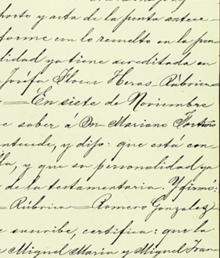 horto y acta de la junta antece
forme con lo resuelto en la pro
lidad ya tiene acreditada en
Josefa Flores Heras. Rúbrica
= En siete de Noviembre
e saber á Dn. Mariano Fortun
entende, y dijo: que está con
lla, y que su personalidad ya
de la testamentaria. Y firmó:
= Rúbrica = Romero Gonzalez
e suscribe, certifica: que la
Miguel Maria y Miguel Fran